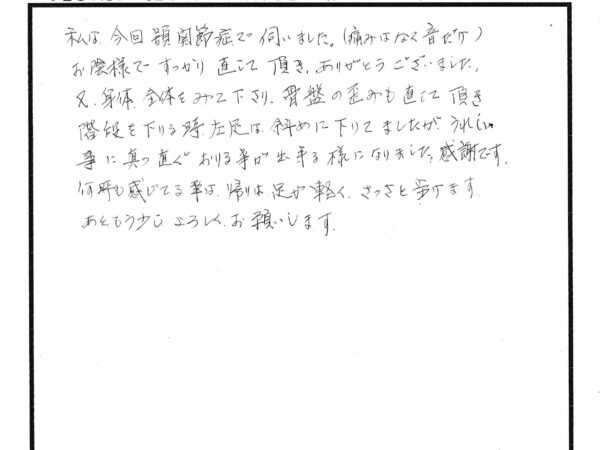 私は、今回顎関節症で伺いました。(痛みはなく音だけ)
お陰様ですっかり直して頂き、ありがとうございました。
又、身体全体をみて下さり、骨盤の歪みも直して頂き
階段を下りる時、左足は、斜めに下りてましたが、うれしい
事に真っ直ぐおりる事が出来る様になりました。感謝です。
何時も感じてる事は、帰りは足が軽く、さっさと歩けます。
あともう少しよろしくお願いします。